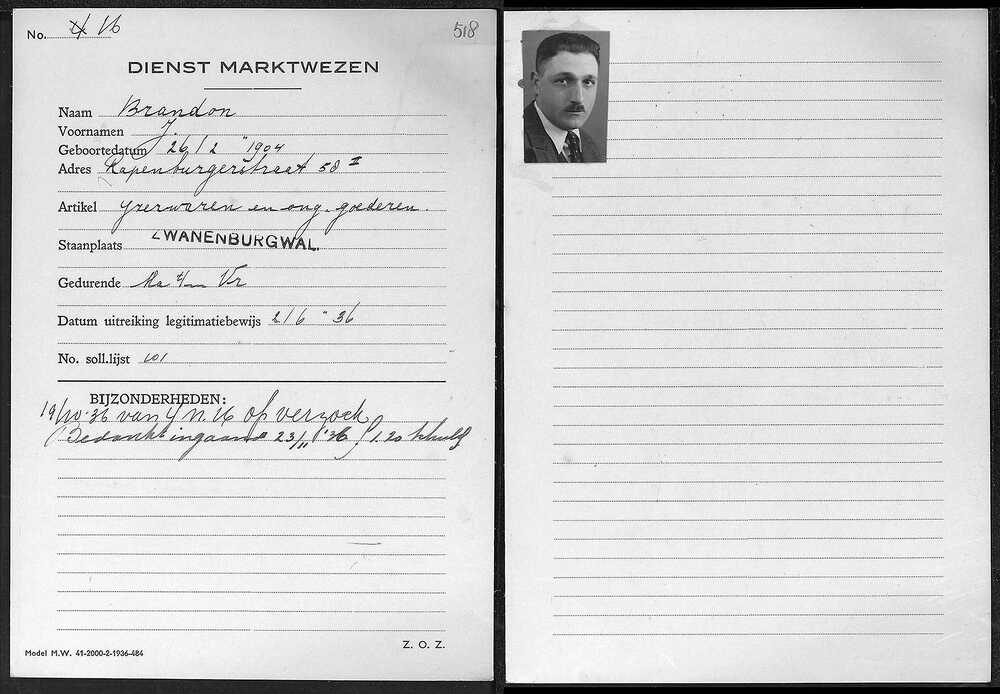 No. 4 16
518
DIENST MARKTWEZEN
Naam Brandon
Voornamen J.
Geboortedatum 26/2 " 1904
Adres Rapenburgerstraat 58 II
Artikel yzerwaren en ong. goederen.
Staanplaats ZWANENBURGWAL.
Gedurende Ma t/m Vr
Datum uitreiking legitimatiebewijs 2/6 " 36
No. soll.lijst 101
BIJZONDERHEDEN:
19/10-36 van 4 n. 16 op verzoek
Bedankt ingaande 23/11 '36 f 1.20 schuld
Model M.W. 41-2000-2-1936-484
Z. O. Z.